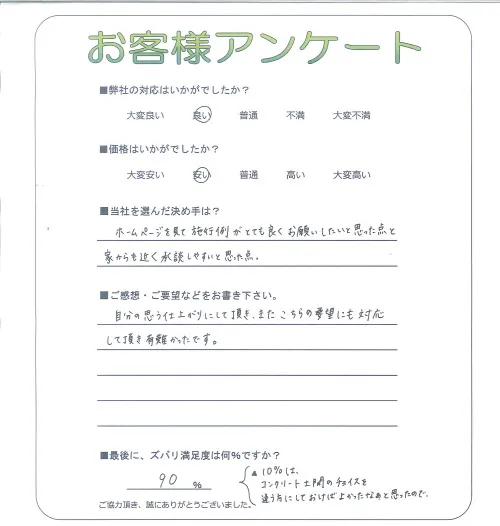 お客様アンケート
■弊社の対応はいかがでしたか？
大変良い 良い 普通 不満 大変不満
■価格はいかがでしたか？
大変安い 安い 普通 高い 大変高い
■当社を選んだ決め手は？
ホームページを見て施行例がとても良くお願いしたいと思った点と
家からも近く相談しやすいと思った点。
■ご感想・ご要望などをお書き下さい。
自分の思う仕上がりにして頂き、またこちらの要望にも対応
して頂き有難かったです。
■最後に、ズバリ満足度は何%ですか？
90 %
▲10%は、
コンクリート土間のチョイスを
違う方にしておけば良かったなぁと思ったので。
ご協力頂き、誠にありがとうございました。